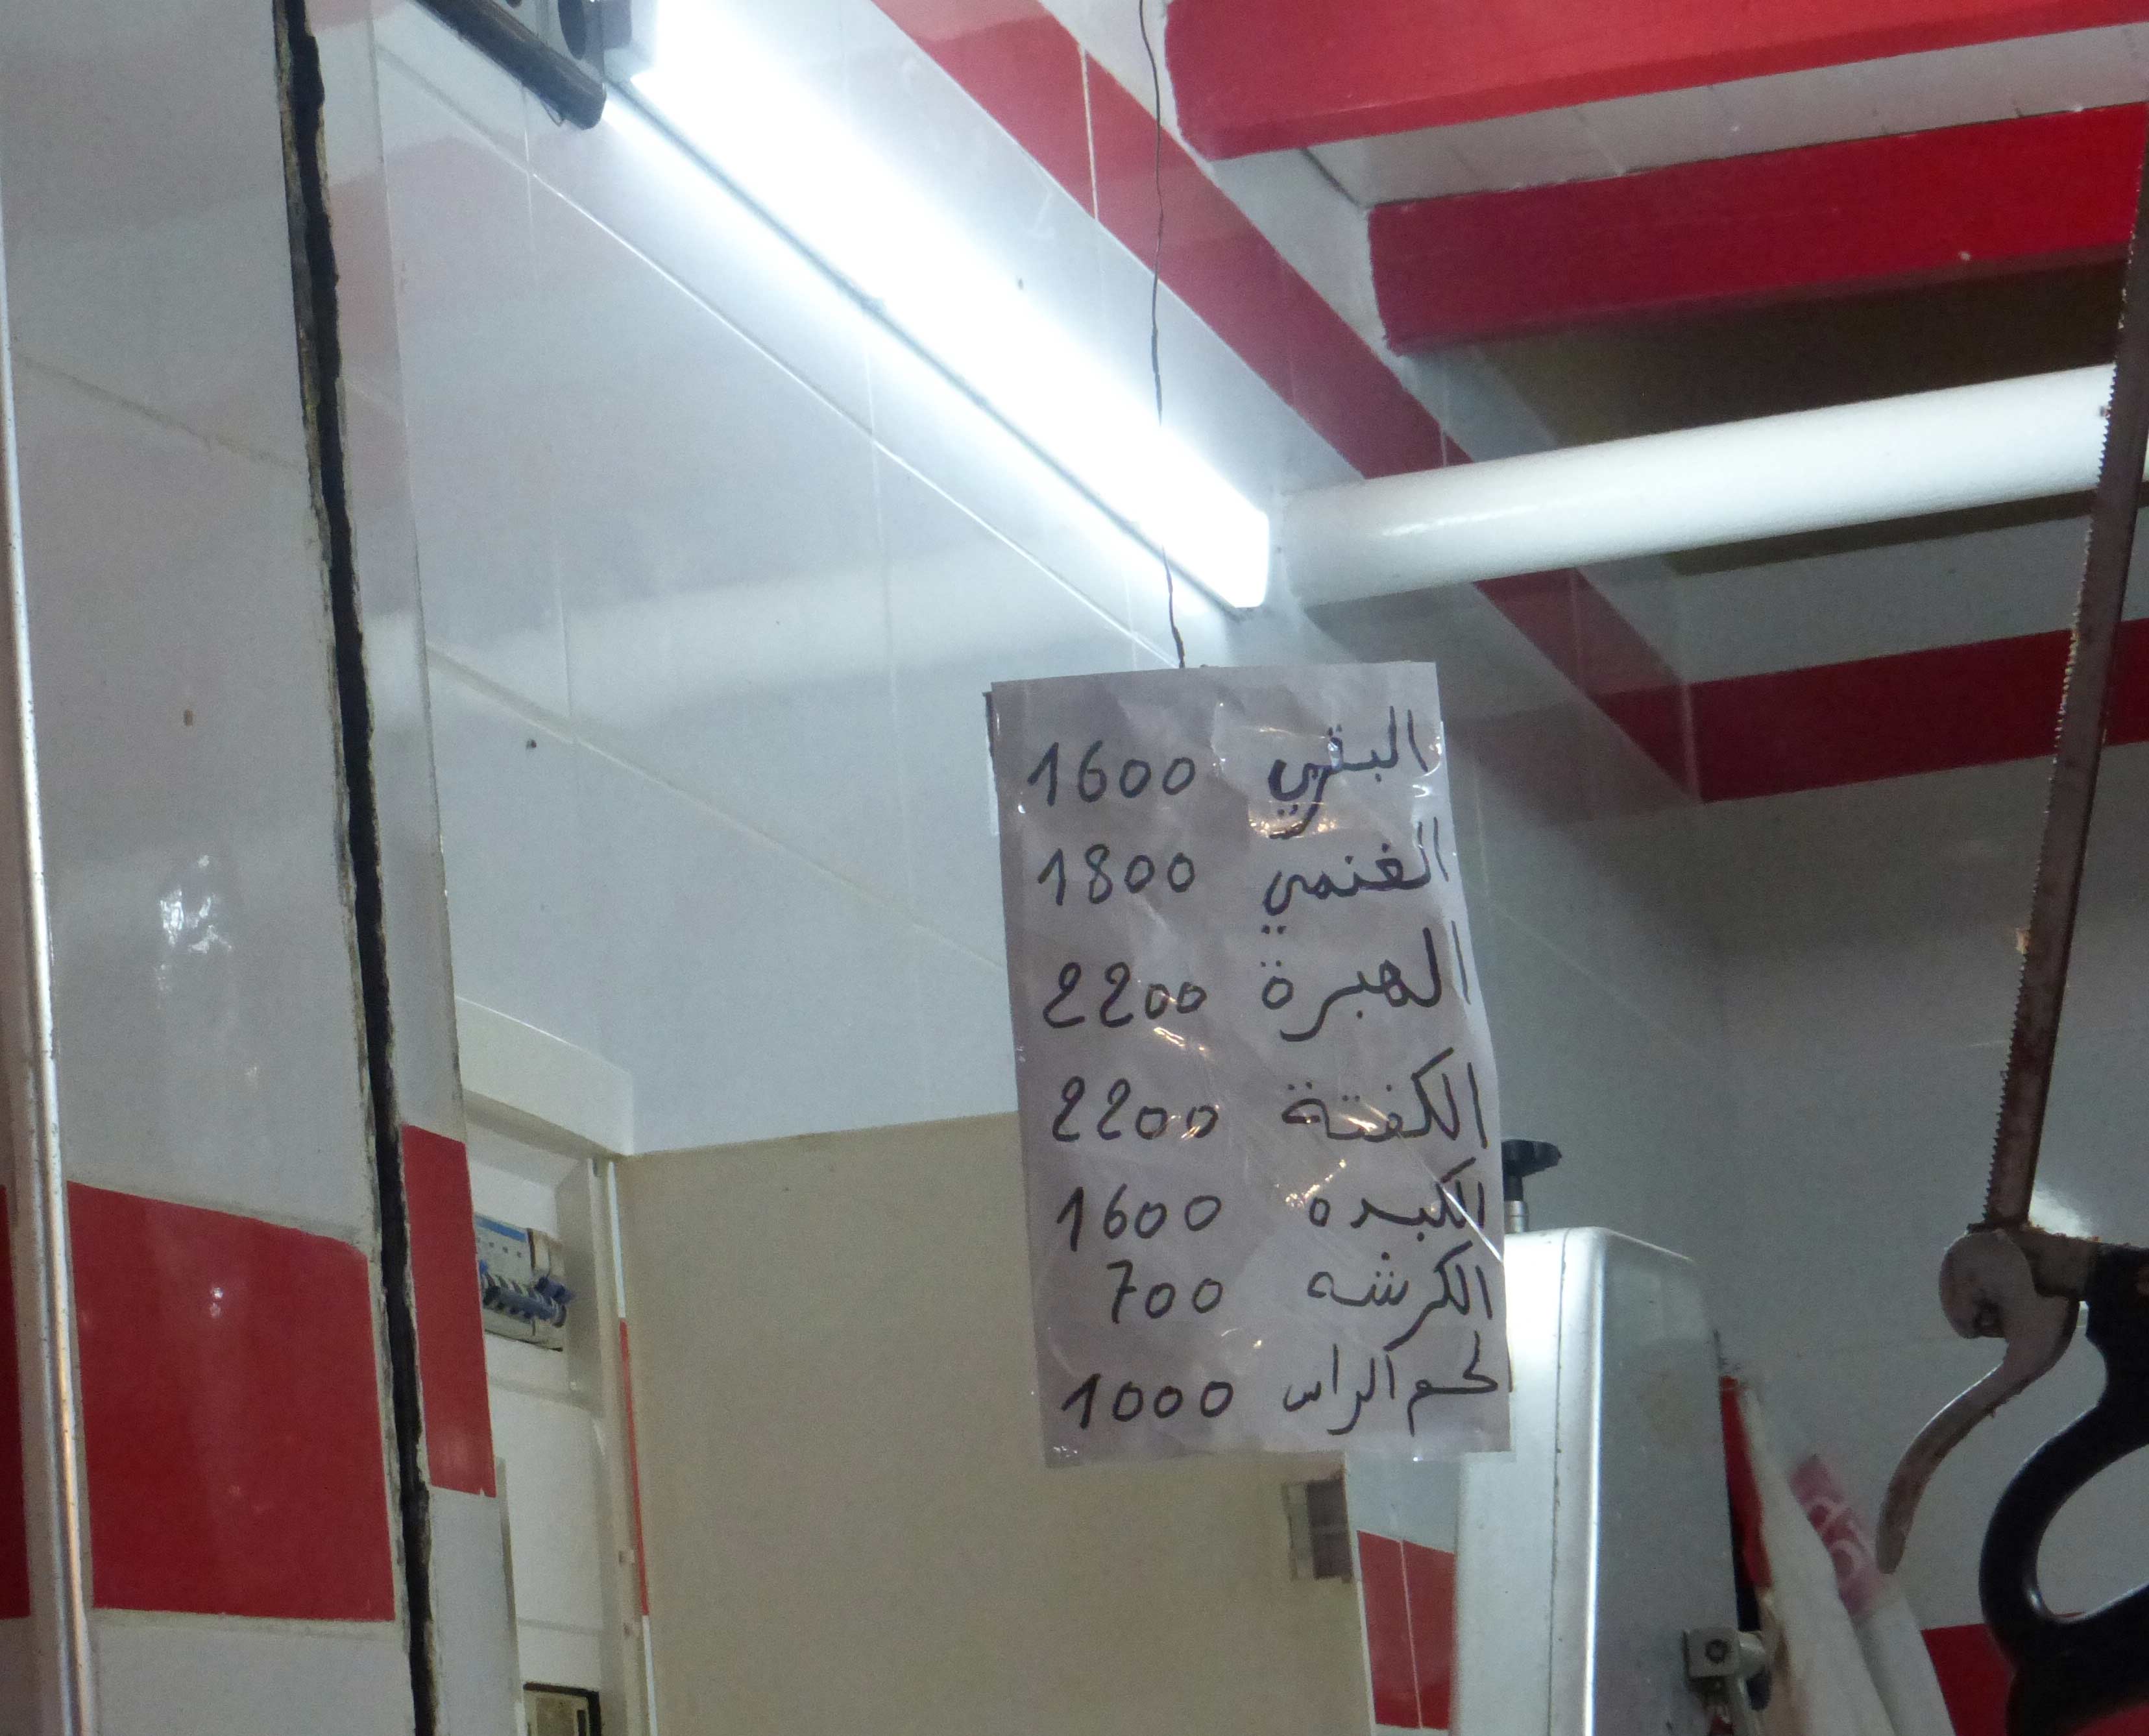 البقري 1600
الغنمي 1800
الهبرة 2200
الكفتة 2200
الكبده 1600
الكرشه 700
لحم الراس 1000